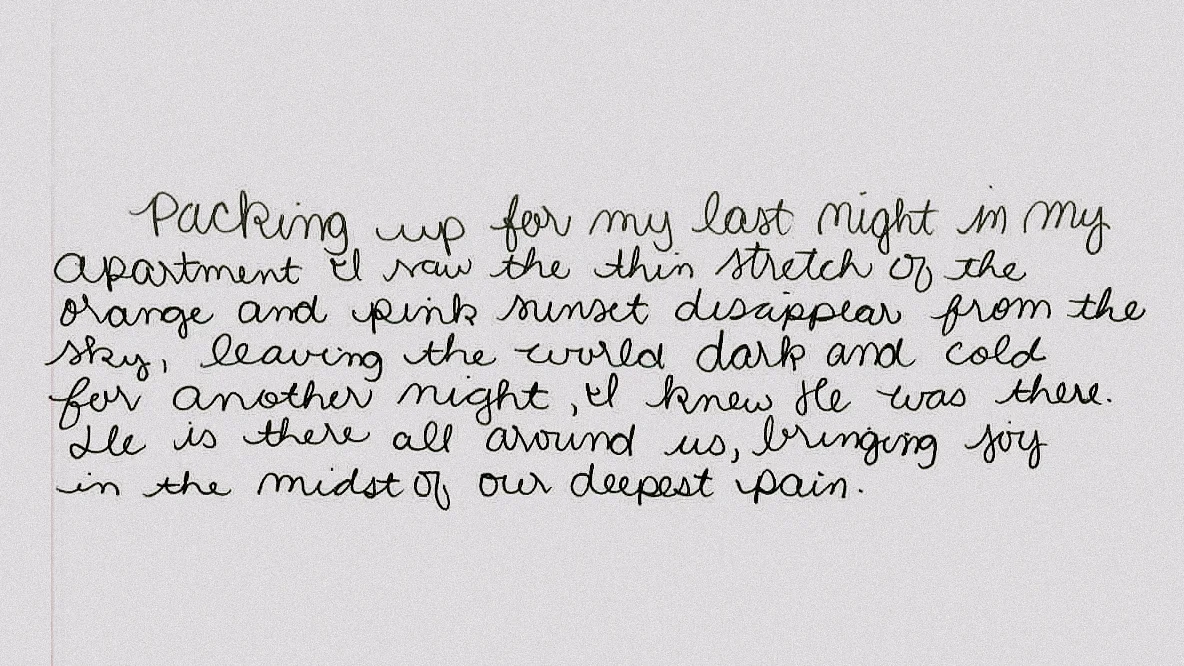 Packing up for my last night in my
apartment I saw the thin stretch of the
orange and pink sunset disappear from the
sky, leaving the world dark and cold
for another night, I knew He was there.
He is there all around us, bringing joy
in the midst of our deepest pain.